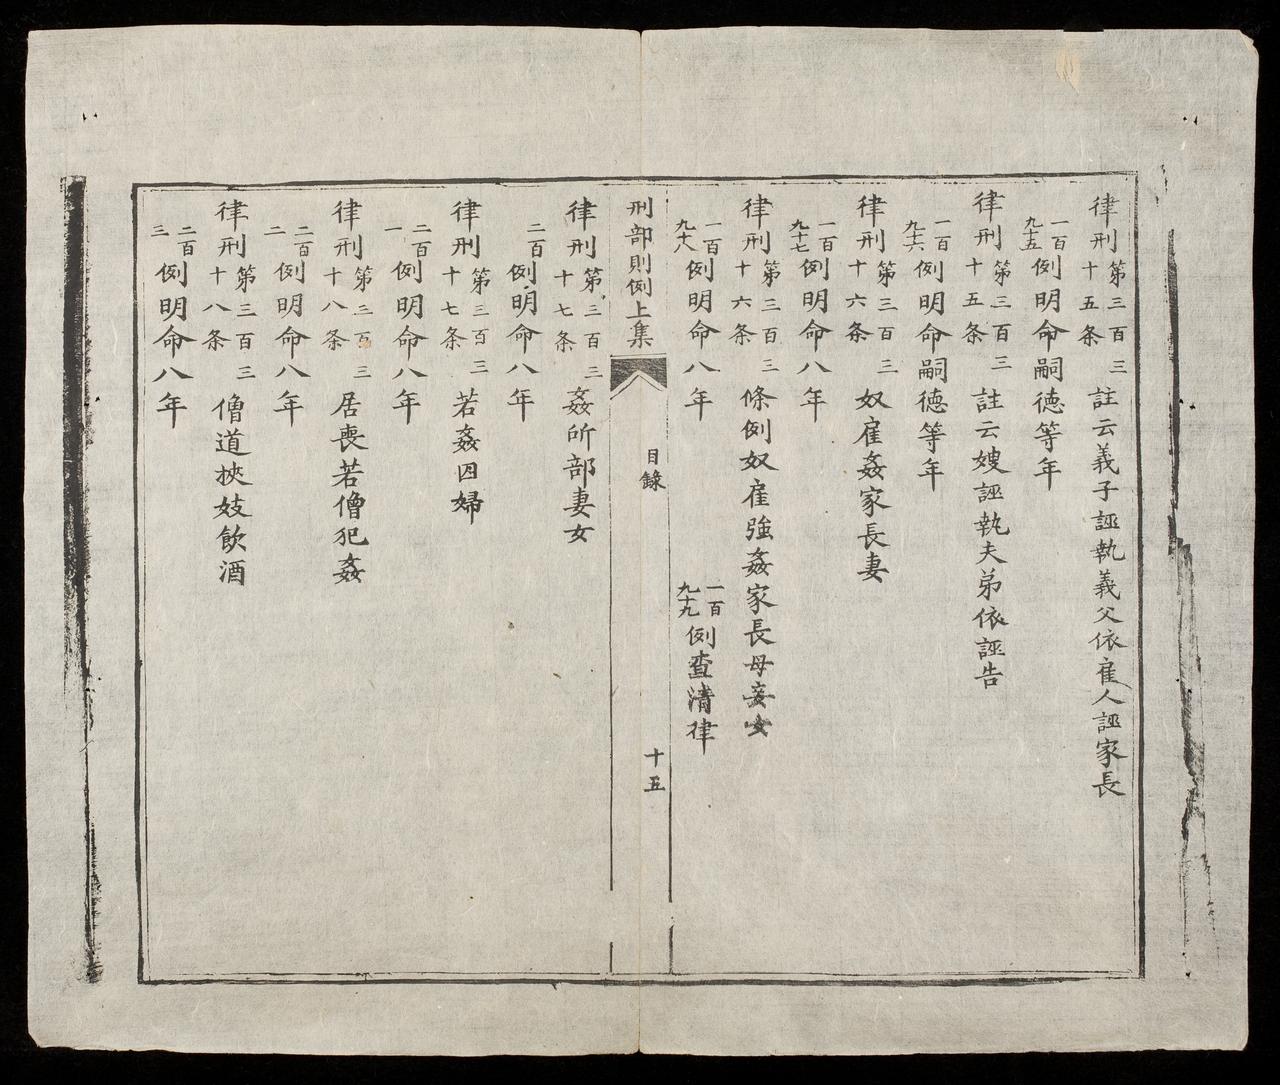 律刑第三百三十五条註云義子誣執義父依雇人誣家長
一百九十五例明命嗣徳等年
律刑第三百三十五条註云嫂誣執夫弟依誣告
一百九十六例明命嗣徳等年
律刑第三百三十六条奴雇姦家長妻
一百九十七例明命八年
律刑第三百三十六条條例奴雇強姦家長母妾女
一百九十八例明命八年 一百九十九例查清律
刑部則例上集 目錄 十五
律刑第三百三十七条姦所部妻女
二百例明命八年
律刑第三百三十七条若姦囚婦
二百一例明命八年
律刑第三百三十八条居喪若僧犯姦
二百二例明命八年
律刑第三百三十八条僧道挾妓飲酒
二百三例明命八年